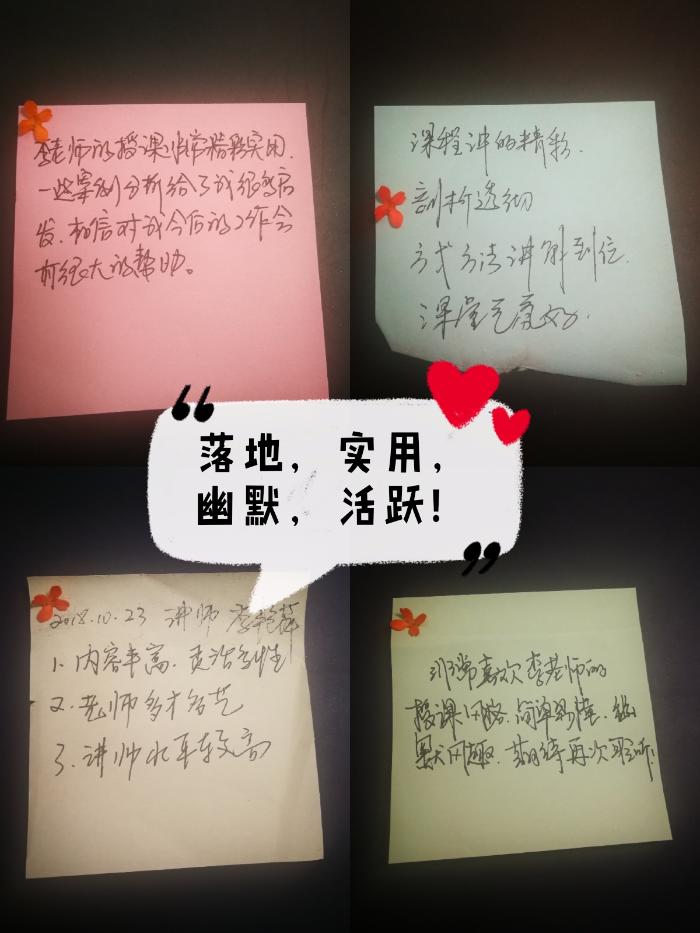 李老师的授课非常精彩实用.
一些案例分析给了我很多启
发.相信对我今后的工作会
有很大的帮助。
课程讲的精彩.
剖析透彻
方式方法讲解到位.
课堂气氛好.
“
落地，实用，
幽默，活跃!
”
2018.10.23 讲师 李艳萍
1. 内容丰富.灵活多性
2. 老师多才多艺
3. 讲师水平较高
非常喜欢李老师的
授课风格.简单易懂.幽
默风趣.期待再次聆听!